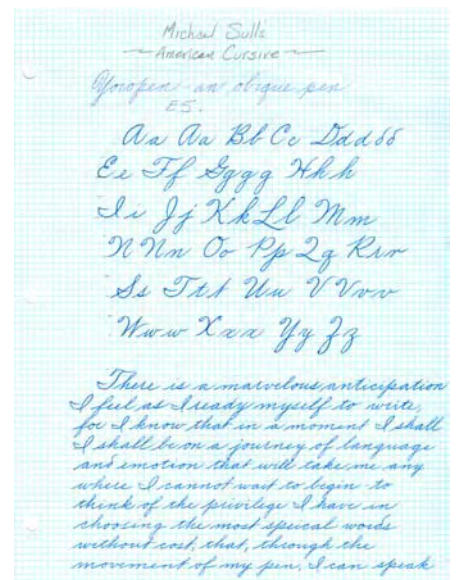 Michael Sull's
~ American Cursive ~
Yoropen - an oblique pen
ES.
Aa Aa Bb Cc Dd d δ δ
Ee Ff Gg g g Hh h
Ii Jj Kk Ll Mm
N N n Oo Pp Qq Rr r
Ss Tt t Uu V V v v
Ww w Xx x Yy Zz
There is a marvelous anticipation
I feel as I ready myself to write,
for I know that in a moment I shall
I shall be on a journey of language
and emotion that will take me any
where I cannot wait to begin - to
think of the privilege I have in
choosing the most speical words
without cost, that, through the
movement of my pen, I can speak